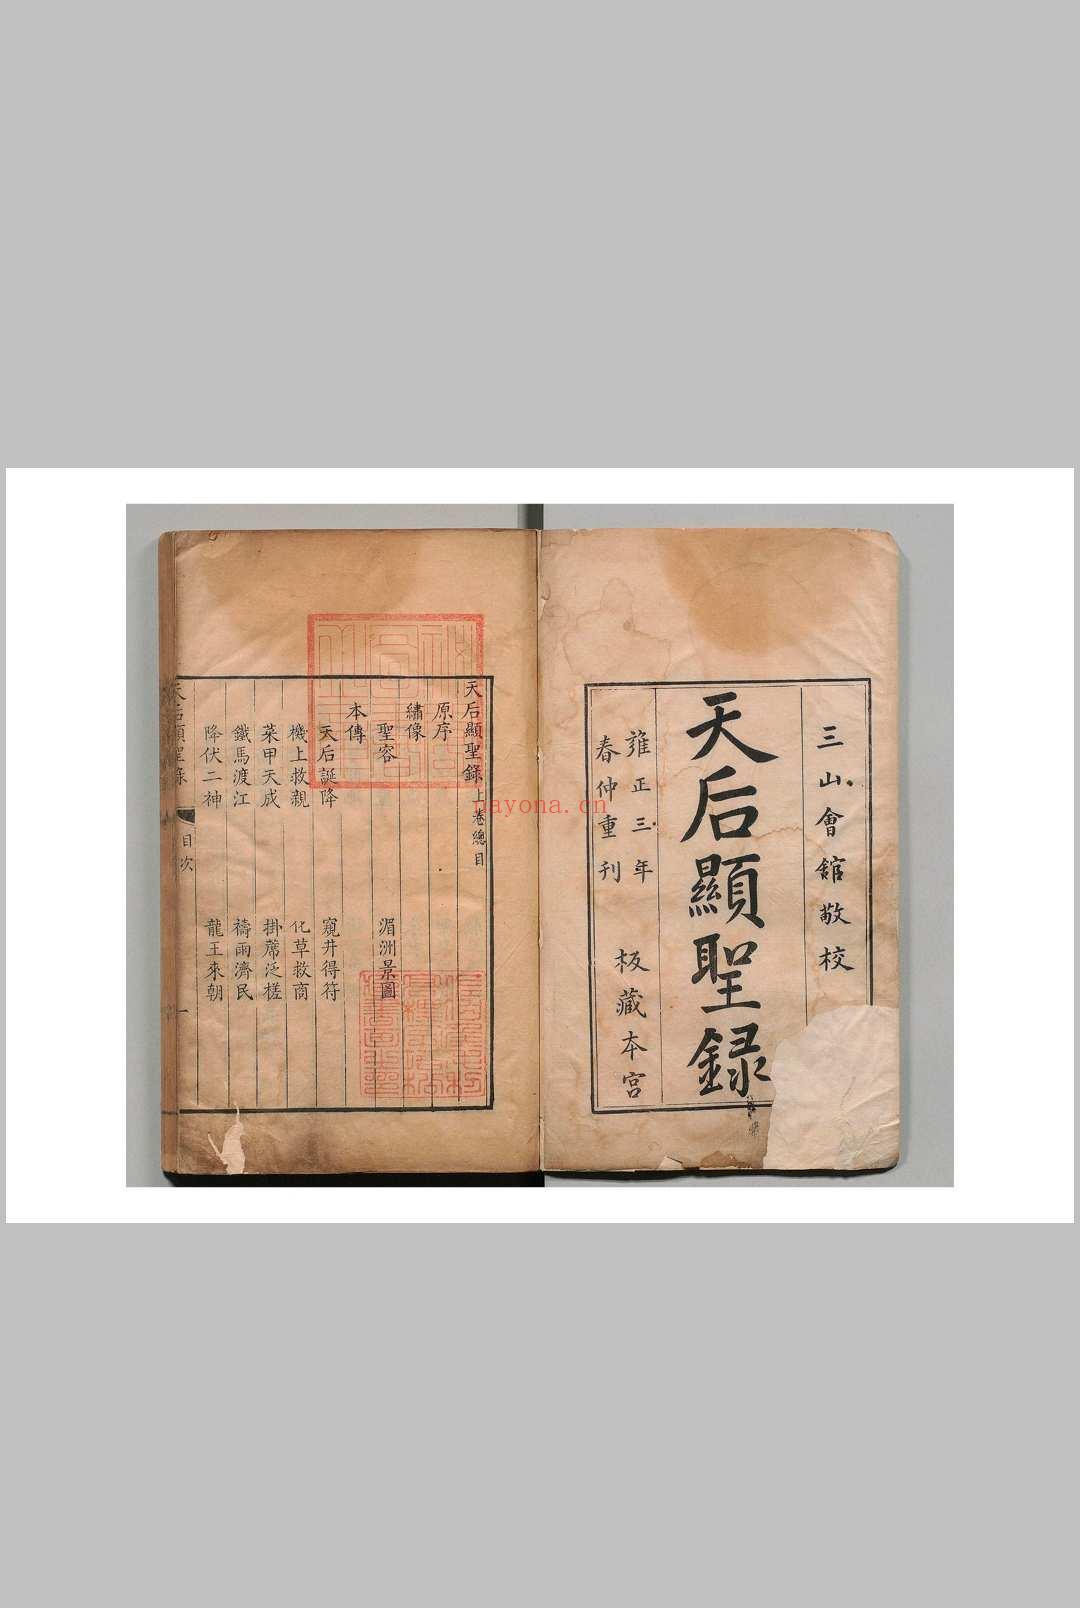 三山會館敬校
天后顯聖錄
雍正三年
春仲重刊
板藏本宮
天后顯聖錄上卷總目
原序
繡像
聖容 湄洲景圖
本傳
天后誕降 窺井得符
機上救親 化草救商
菜甲天成 掛蓆泛槎
鐵馬渡江 禱雨濟民
降伏二神 龍王來朝
天后顯聖錄 目次 一
nayona.cn